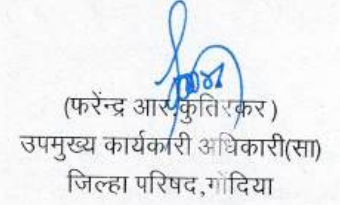 (फरेंन्द्र आर.कुतिरकर)
उपमुख्य कार्यकारी अधिकारी(सा)
जिल्हा परिषद,गोंदिया